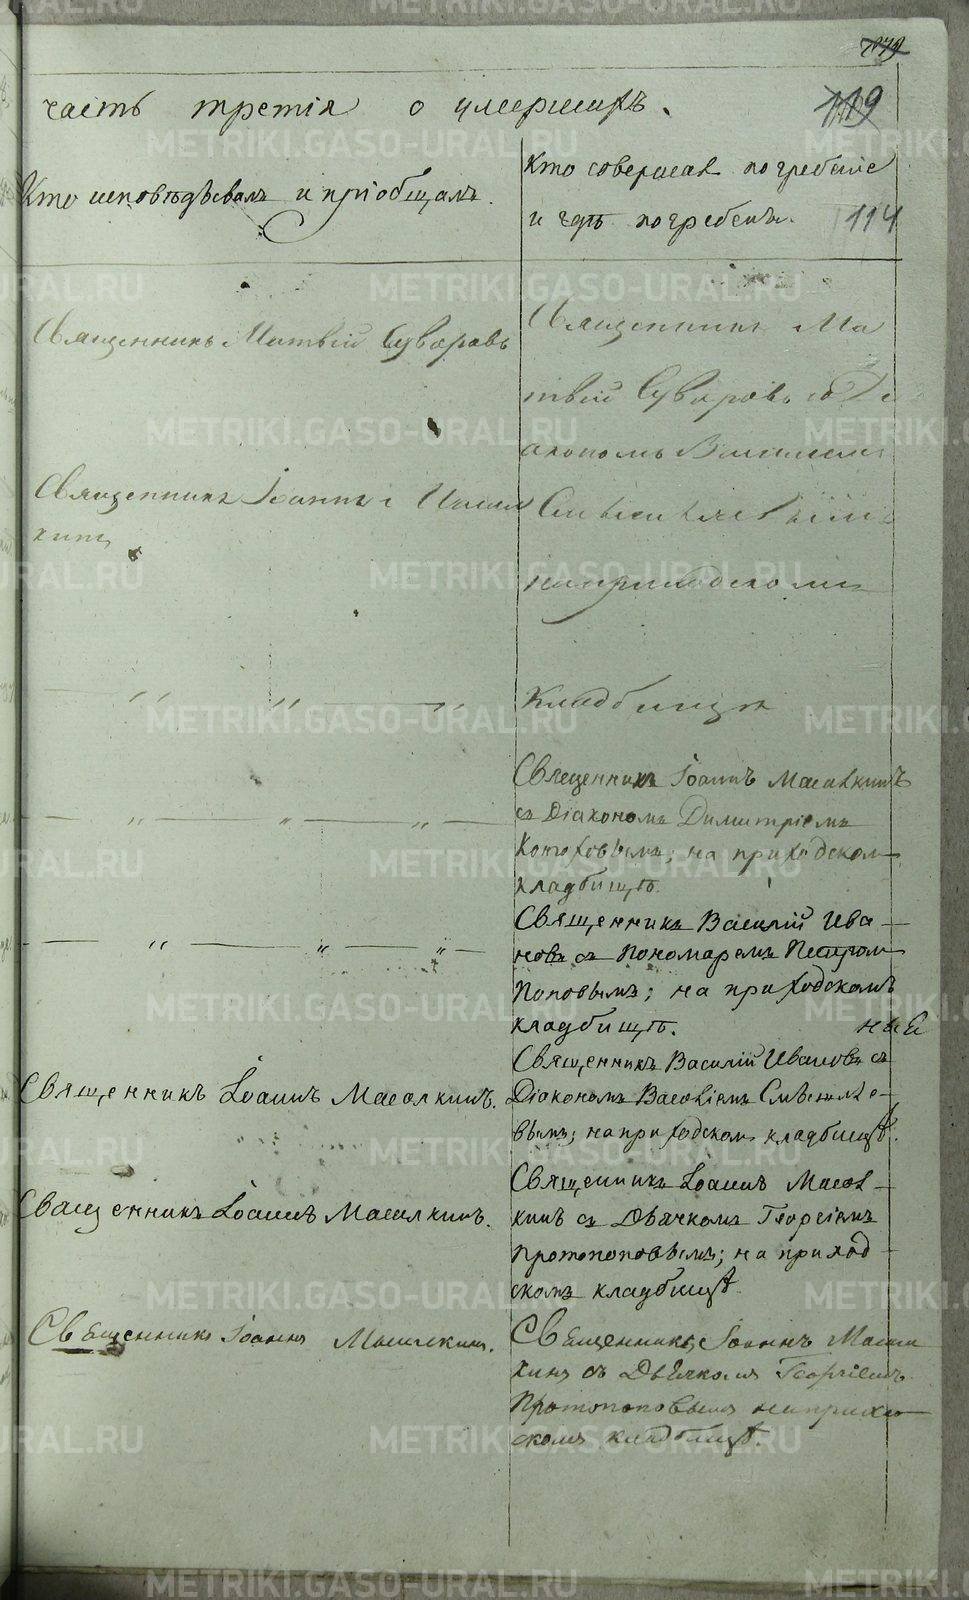 часть третія о умершихъ.
119
Кто исповѣдывалъ и пріобщалъ.
Кто совершалъ погребеніе
и гдѣ погребенъ.
114
Священникъ Матвій Суворовъ
Священникъ Ма
твій Суворовъ со Ді
акономъ Василіемъ
Священникъ Іоаннъ
кинъ
на приходскомъ
Кладбищѣ
Священникъ Іоаннъ Масалкинъ
съ Діакономъ Димитріемъ
на приходском
кладбищѣ.
Священникъ Василій Ива-
новъ съ Пономаремъ Петром
Поповымъ; на приходскомъ
кладбищѣ.
Священникъ Василій Ивановъ съ
Священникъ Іоаннъ Масалкинъ.
Діакономъ Василіемъ
вымъ; на приходском кладбищѣ.
Священникъ Іоаннъ Масал-
Священникъ Іоаннъ Масалкинъ.
кинъ съ Дьячкомъ Георгіемъ
Протопоповымъ; на приход-
скомъ кладбищѣ.
Священникъ Іоаннъ Масалкинъ.
Священникъ Іоаннъ Масал
кинъ съ Дьячкомъ Георгіемъ
Протопоповымъ на прихо
скомъ кладбищѣ.
METRIKI.GASO-URAL.RU